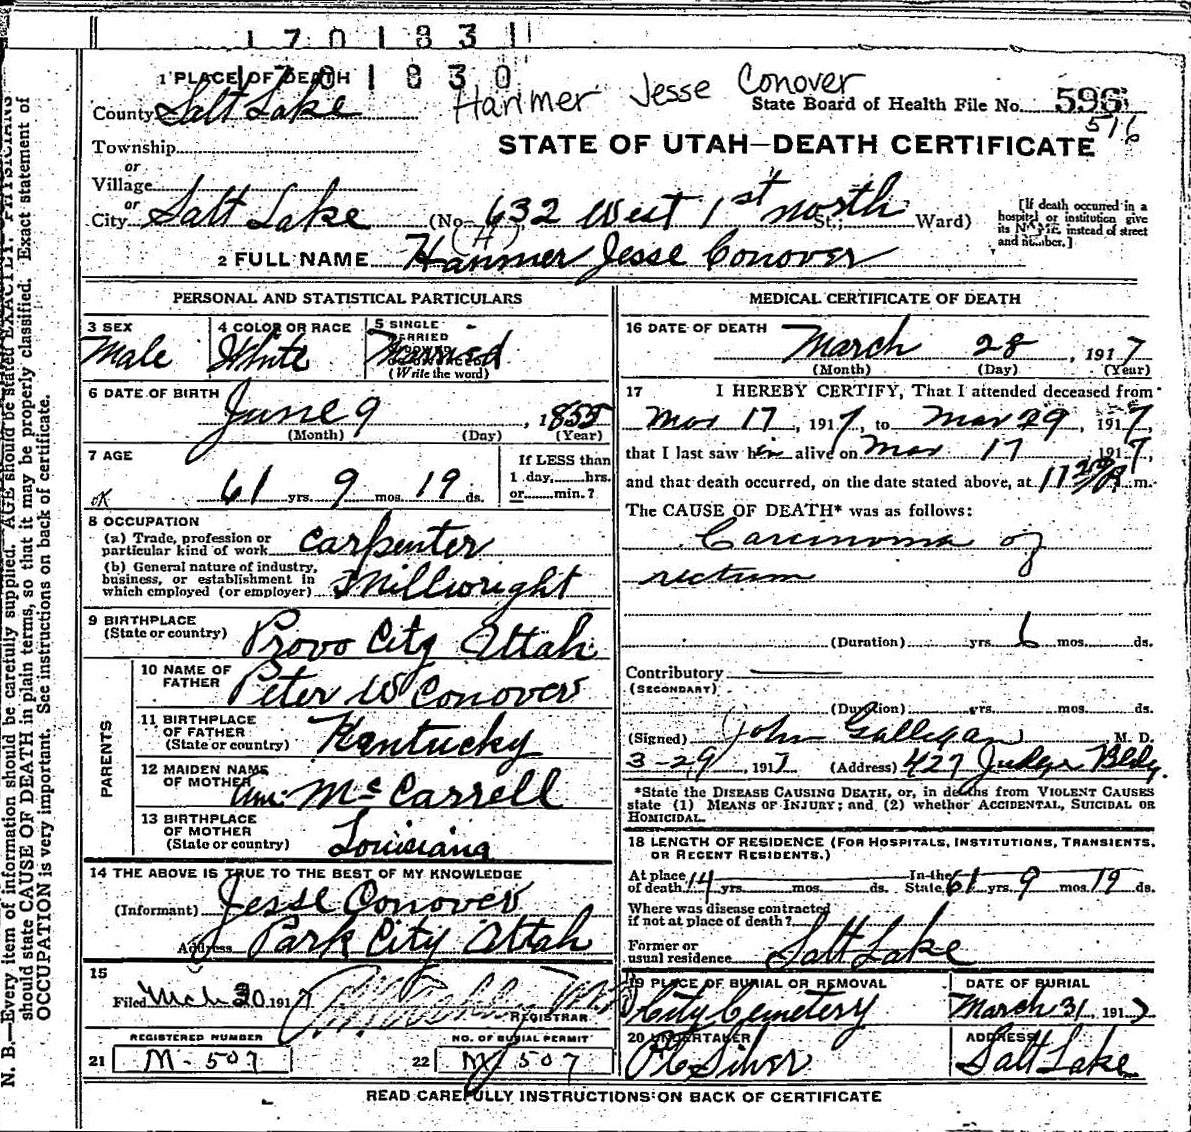 1701831
1701830
1 PLACE OF DEATH
Hanmer Jesse Conover
County Salt Lake
State Board of Health File No. 596
516
Township
STATE OF UTAH—DEATH CERTIFICATE
or
Village
or
City Salt Lake (No. 632 West 1st North St.; Ward)
[If death occurred in a
hospital or institution give
its NAME instead of street
and number.]
(H)
2 FULL NAME Hanmer Jesse Conover
PERSONAL AND STATISTICAL PARTICULARS
3 SEX
Male
4 COLOR OR RACE
White
5 SINGLE
MARRIED
WIDOWED
OR DIVORCED
Married
(Write the word)
6 DATE OF BIRTH
June 9, 1855
(Month) (Day) (Year)
7 AGE
OK
61 yrs. 9 mos. 19 ds.
If LESS than
1 day, hrs.
or min.?
8 OCCUPATION
(a) Trade, profession or
particular kind of work Carpenter
(b) General nature of industry,
business, or establishment in
which employed (or employer) Millwright
9 BIRTHPLACE
(State or country) Provo City Uttah
PARENTS
10 NAME OF
FATHER Peter W Conover
11 BIRTHPLACE
OF FATHER
(State or country) Kentucky
12 MAIDEN NAME
OF MOTHER McCarrell
13 BIRTHPLACE
OF MOTHER
(State or country) Louisiana
14 THE ABOVE IS TRUE TO THE BEST OF MY KNOWLEDGE
(Informant) Jesse Conover
Address Park City Uttah
15
Filed Mch 30 1917
REGISTRAR
REGISTERED NUMBER
21 M-507
NO. OF BURIAL PERMIT
22 M 507
MEDICAL CERTIFICATE OF DEATH
16 DATE OF DEATH
March 28, 1917
(Month) (Day) (Year)
17 I HEREBY CERTIFY, That I attended deceased from
Mar 17, 1917, to Mar 29, 1917,
that I last saw him alive on Mar 17, 1917,
and that death occurred, on the date stated above, at 11 A m.
The CAUSE OF DEATH* was as follows:
Carcinoma of
rectum
(Duration) yrs. 6 mos. ds.
Contributory
(SECONDARY)
(Duration) yrs. mos. ds.
(Signed) John Galligan, M. D.
3-29, 1917 (Address) 427 Judge Bldg.
*State the DISEASE CAUSING DEATH, or, in deaths from VIOLENT CAUSES
state (1) MEANS OF INJURY; and (2) whether ACCIDENTAL, SUICIDAL OR
HOMICIDAL.
18 LENGTH OF RESIDENCE (FOR HOSPITALS, INSTITUTIONS, TRANSIENTS,
OR RECENT RESIDENTS.)
At place
of death 14 yrs. mos. ds. In the
State 61 yrs. 9 mos. 19 ds.
Where was disease contracted
if not at place of death?
Former or
usual residence Salt Lake
19 PLACE OF BURIAL OR REMOVAL
City Cemetery
DATE OF BURIAL
March 31, 1917
20 UNDERTAKER
Silver
ADDRESS
Salt Lake
READ CAREFULLY INSTRUCTIONS ON BACK OF CERTIFICATE
N. B.—Every item of information should be carefully supplied. AGE should be stated EXACTLY. PHYSICIANS
should state CAUSE OF DEATH in plain terms, so that it may be properly classified. Exact statement of
OCCUPATION is very important. See instructions on back of certificate.